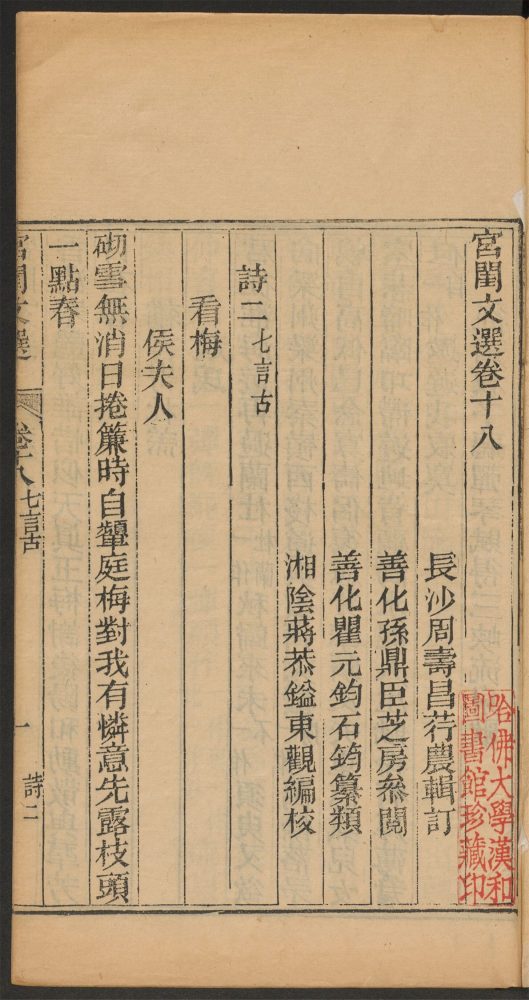 宮閨文選卷十八
長沙周壽昌荇農輯訂
善化孫鼎臣芝房參閱
善化瞿元鈞石筠纂類
湘陰蔣恭鎰東觀編校
詩二七言古
看梅
侯夫人
砌雪無消日捲簾時自顰庭梅對我有憐意先露枝頭
一點春
宮閨文選
卷十八
七言古
一
詩二
哈佛大學漢和
圖書館珍藏印